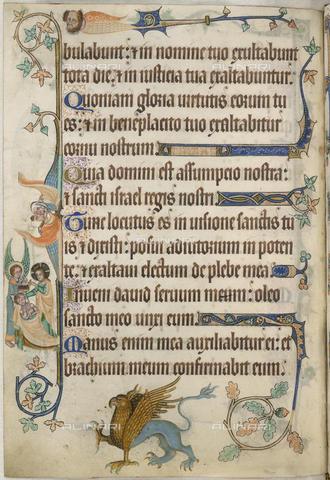 bulabunt: ⁊ in nomine tuo exultabunt
tota die. ⁊ in iusticia tua exaltabuntur.
Quoniam gloria uirtutis eorum tu
es: ⁊ in beneplacito tuo exaltabitur
cornu nostrum
Quia domini est assumpcio nostra:
⁊ sancti israel regis nostri
Tunc locutus es in uisione sanctis tu
is ⁊ dixisti: posui adiutorium in poten
te. ⁊ exaltaui electum de plebe mea
Inueni dauid seruum meum: oleo
sancto meo unxi eum.
Manus enim mea auxiliabitur ei: et
brachium meum confirmabit eum.
ALINARI
ALINARI